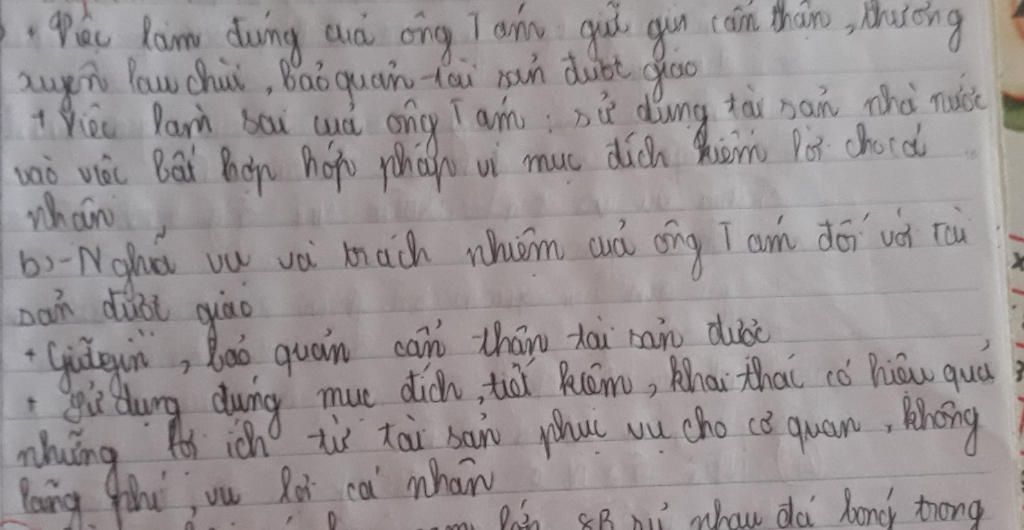 + Việc làm đúng của ông Tám: giữ gìn cẩn thận, thường
xuyên lau chùi, bảo quản tài sản được giao
+ Việc làm sai của ông Tám: sử dụng tài sản nhà nước
vào việc bất hợp hợp pháp vì mục đích kiếm lời cho cá
nhân
b) - Nghĩa vụ và trách nhiệm của ông Tám đối với tài
sản được giao
+ Giữ gìn, bảo quản cẩn thận tài sản được
+ Sử dụng đúng mục đích, tiết kiệm, khai thác có hiệu quả
những lợi ích từ tài sản phục vụ cho cơ quan, không
lãng phí, vụ lợi cá nhân
8B rủ nhau đá bóng trong